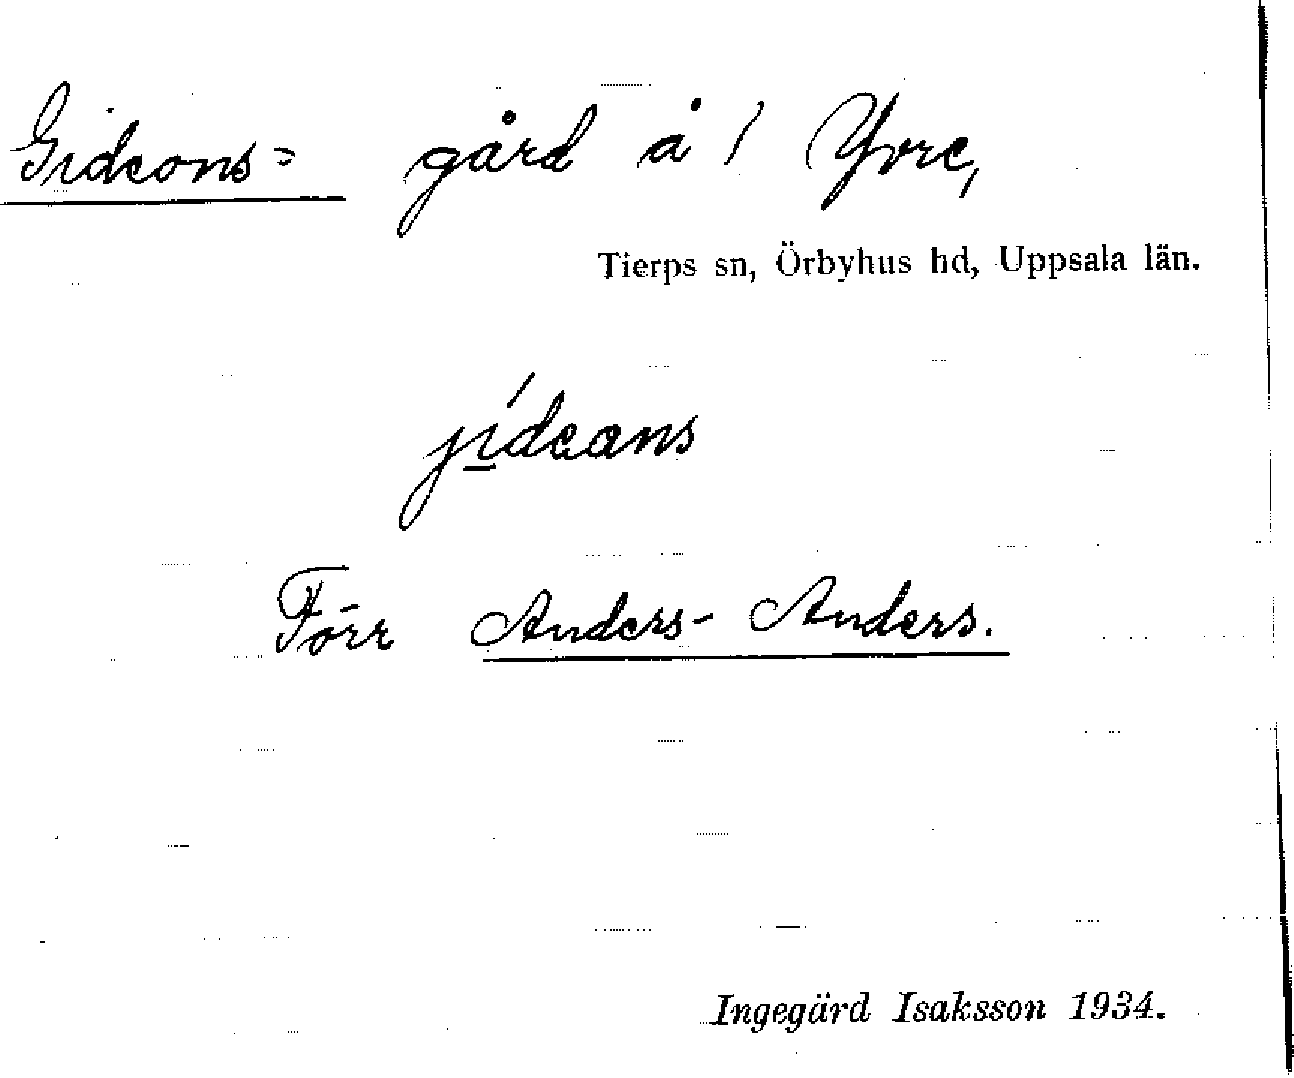 Gideons= gård å 1 Yvre,
Tierps sn, Örbyhus hd, Uppsala län.
jídeans
Förr Anders-Anders.
Ingegärd Isaksson 1934.